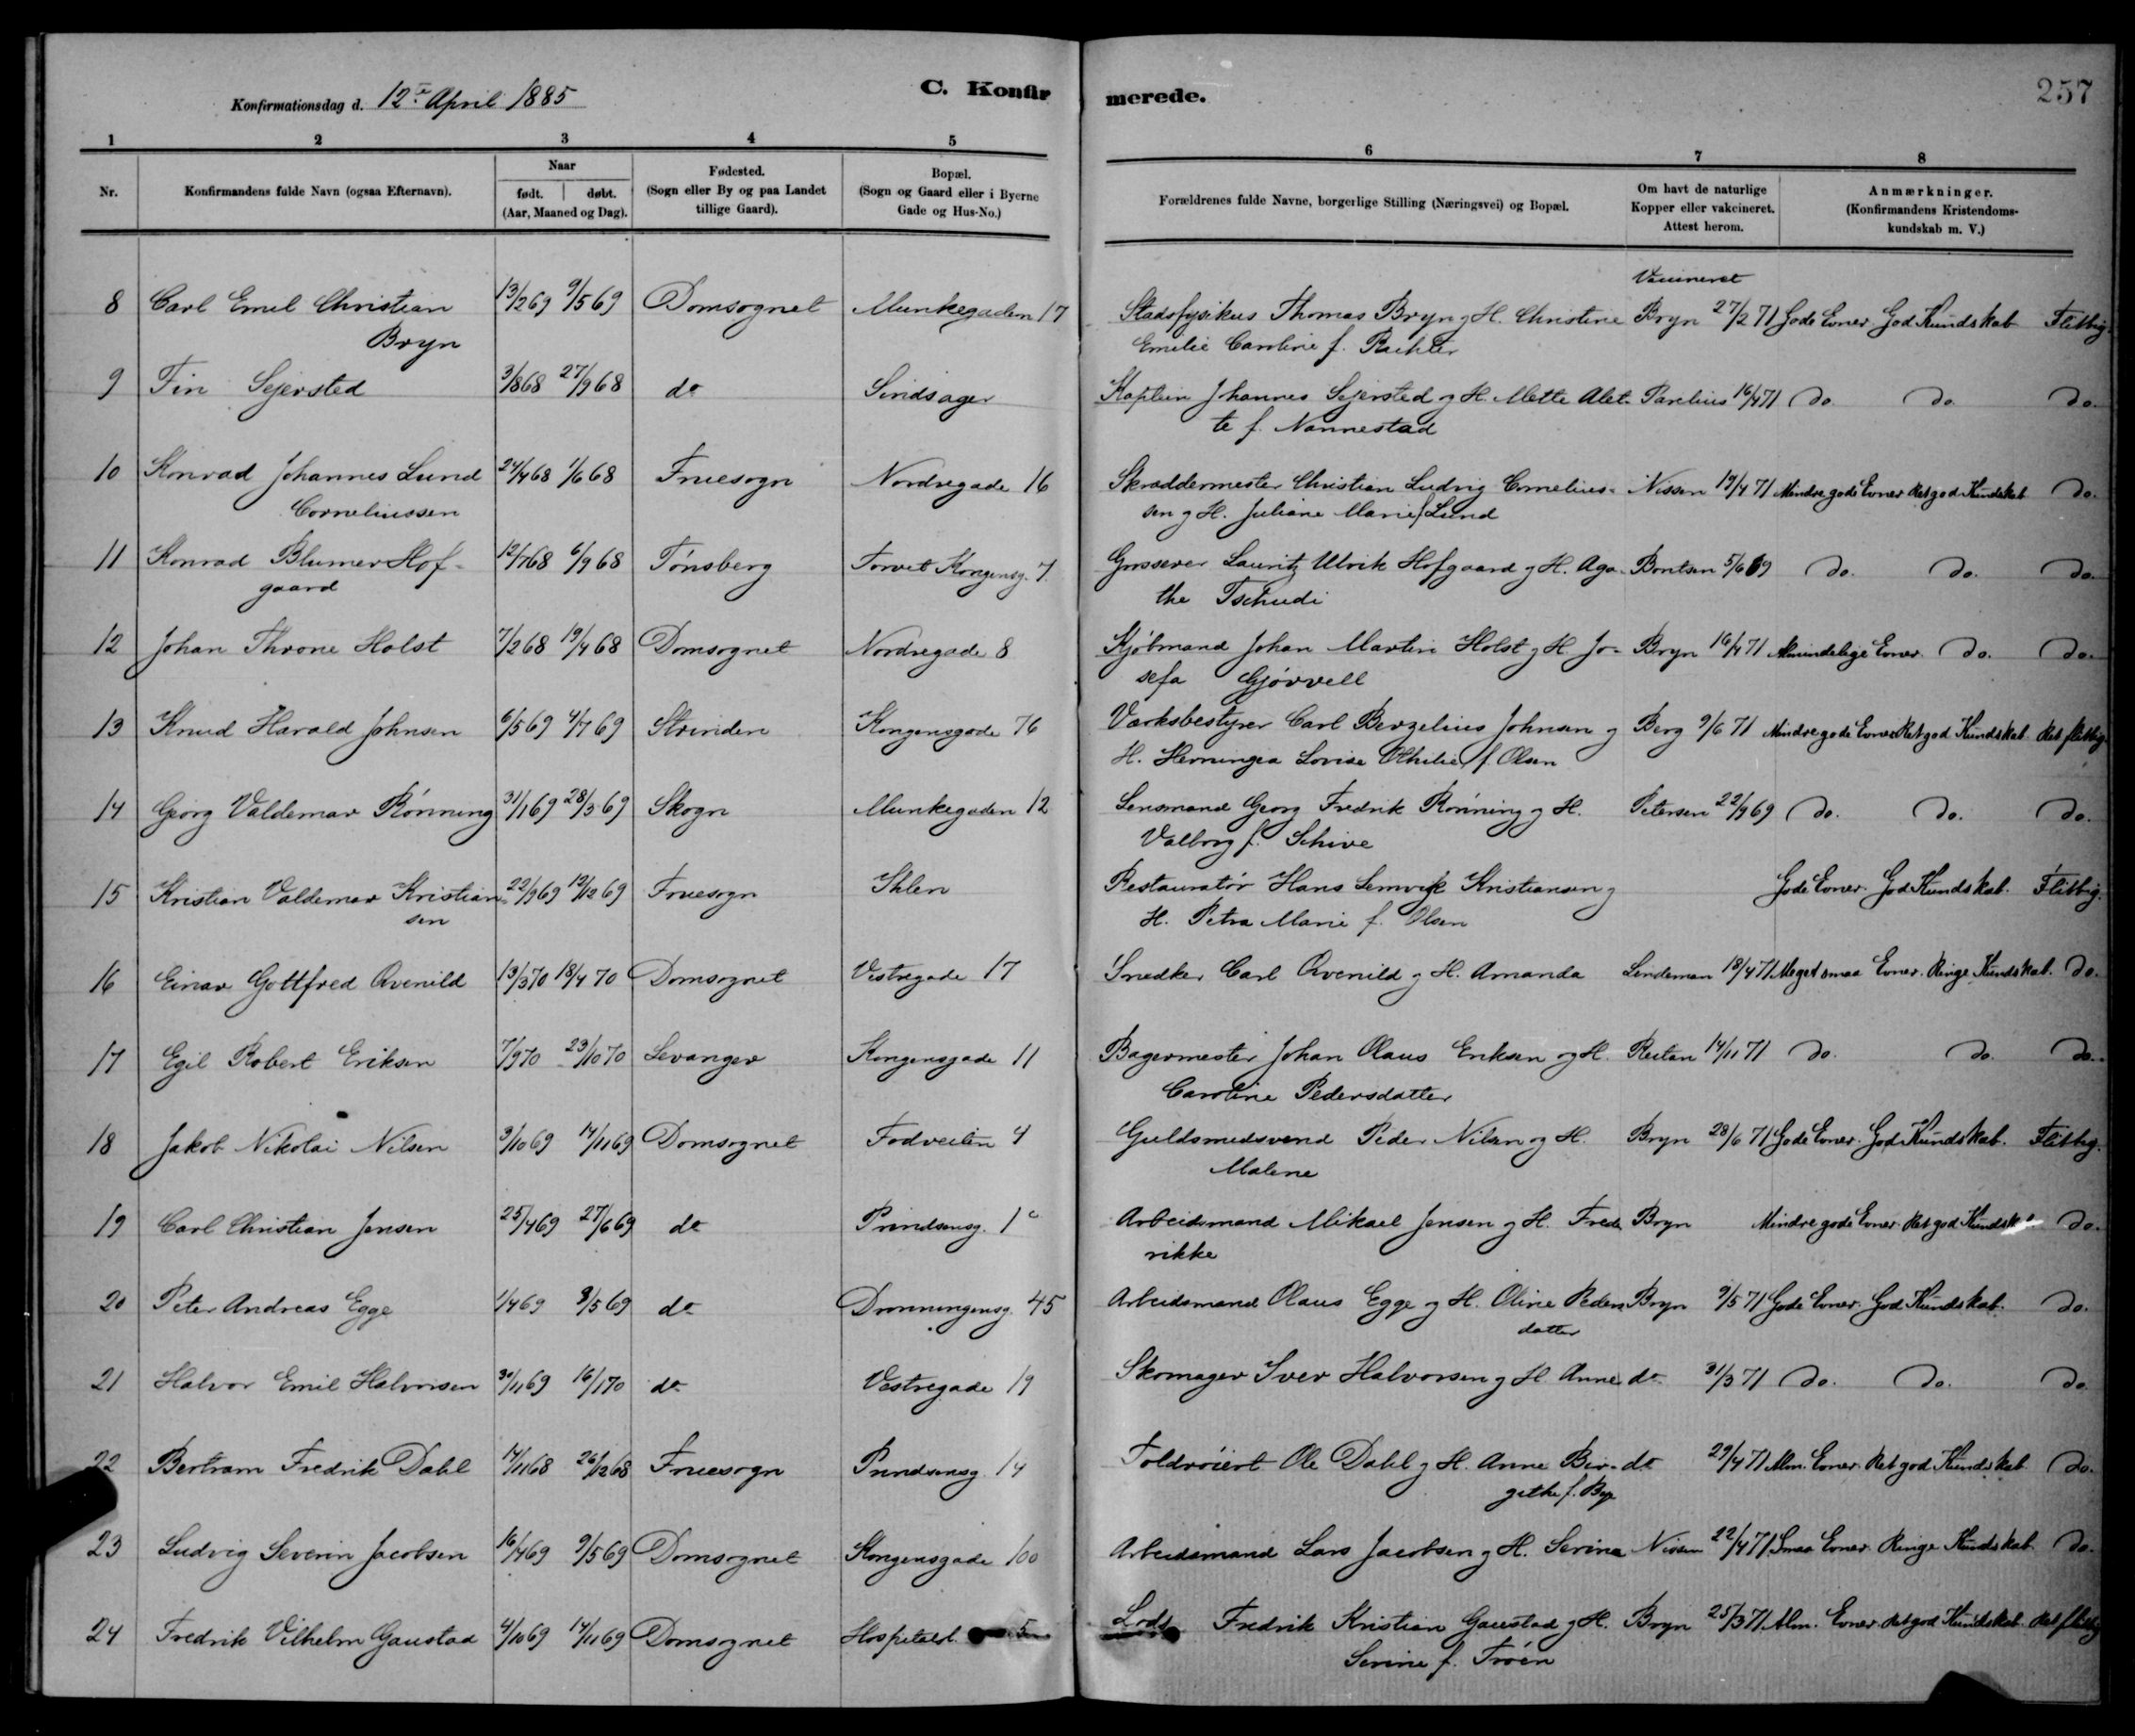 Konfirmationsdag d. 12te April 1885
C. Konfirmerede.
257
1 2 3 4 5 6 7 8
Nr.
Konfirmandens fulde Navn (ogsaa Efternavn).
Naar
født. | døbt.
(Aar, Maaned og Dag).
Fødested.
(Sogn eller By og paa Landet
tillige Gaard).
Bopæl.
(Sogn og Gaard eller i Byerne
Gade og Hus-No.)
Forældrenes fulde Navne, borgerlige Stilling (Næringsvei) og Bopæl.
Om havt de naturlige
Kopper eller vakcineret.
Attest herom.
Anmærkninger.
(Konfirmandens Kristendoms-
kundskab m. V.)
Vaccineret
8 Carl Emil Christian 13/2 69 9/5 69 Domsognet Munkegaden 17 Stadsfysikus Thomas Bryn og H. Christine Bryn 27/2 71 Gode Evner. God Kundskab Flittig.
Bryn Emilie Caroline f.
9 Fin Sejersted 3/8 68 27/9 68 do Sindsager Kaptein Johannes Sejersted og H. Mette Alet- Parelius 16/4 71 do. do. do.
te f. Nannestad
10 Konrad Johannes Lund 24/4 68 1/6 68 Fruesogn Nordregade 16 Skræddermester Christian Ludvig Cornelius- Nissen 19/4 71 Mindre gode Evner Ret god Kundskab do.
Corneliussen sen og H. Juliane Marie f. Lund
11 Konrad Blumer Hof- 12/7 68 6/9 68 Tønsberg Torvet Kongensg. 7 Grosserer Lauritz Ulrik Hofgaard og H. Aga- Bentsen 5/6 69 do. do. do.
gaard the Tschudi
12 Johan Throne Holst 7/2 68 19/4 68 Domsognet Nordregade 8 Kjøbmand Johan Martin Holst og H. Jo- Bryn 16/4 71 Almindelige Evner. do. do.
sefa Gjørvell
13 Knud Harald Johnsen 6/5 69 4/7 69 Strinden Kongensgade 76 Værksbestyrer Carl Berzelius Johnsen og Berg 9/6 71 Mindre gode Evner Ret god Kundskab. Ret flittig.
H. Henningia Lovise Othilie f. Olsen
14 Georg Valdemar Rønning 31/1 69 28/3 69 Skogn Munkegaden 12 Lensmand Georg Fredrik Rønning og H. Petersen 22/9 69 do. do. do.
Valborg f. Schive
15 Kristian Valdemar Kristian- 22/9 69 19/12 69 Fruesogn Ihlen Restauratør Hans Lemvik Kristiansen og Gode Evner. God Kundskab. Flittig.
sen H. Petra Marie f. Olsen
16 Einar Gottfred Qvenild 13/3 70 18/4 70 Domsognet Vestregade 17 Snedker Carl Qvenild og H. Amanda Lindeman 18/4 71 Meget smaa Evner. Ringe Kundskab. do.
17 Egil Robert Eriksen 7/9 70 23/10 70 Levanger Kongensgade 11 Bagermester Johan Olaus Eriksen og H. Reitan 14/11 71 do. do. do.
Caroline Pedersdatter
18 Jakob Nikolai Nilsen 3/10 69 14/11 69 Domsognet Fodveiten 4 Guldsmedsvend Peder Nilsen og H. Bryn 28/6 71 Gode Evner. God Kundskab. Flittig.
Malene
19 Carl Christian Jensen 25/4 69 27/6 69 do Prindsensg. 1c Arbeidsmand Mikael Jensen og H. Frede Bryn Mindre gode Evner. Ret god Kundskab do.
rikke
20 Peter Andreas Egge 1/4 69 9/5 69 do Dronningensg. 45 Arbeidsmand Olaus Egge og H. Oline Peders Bryn 9/5 71 Gode Evner. God Kundskab. do.
datter
21 Halvor Emil Halvorsen 30/11 69 16/1 70 do Vestregade 19 Skomager Iver Halvorsen og H. Anne do 31/3 71 do. do. do.
22 Bertram Fredrik Dahl 14/11 68 26/12 68 Fruesogn Prindsensg. 14 Toldrøiert Ole Dahl og H. Anne Bir- do 29/4 71 Alm. Evner. Ret god Kundskab do.
gethe f. Bye
23 Ludvig Severin Jacobsen 16/4 69 9/5 69 Domsognet Kongensgade 100 Arbeidsmand Lars Jacobsen og H. Serine Nissen 22/4 71 Smaa Evner Ringe Kundskab do.
24 Fredrik Vilhelm Gaustad 4/10 69 14/11 69 Domsognet Hospitalsl. 5 Lods Fredrik Kristian Gaustad og H. Bryn 25/3 71 Alm. Evner. Ret god Kundskab. Ret flittig
Serine f. Trøen